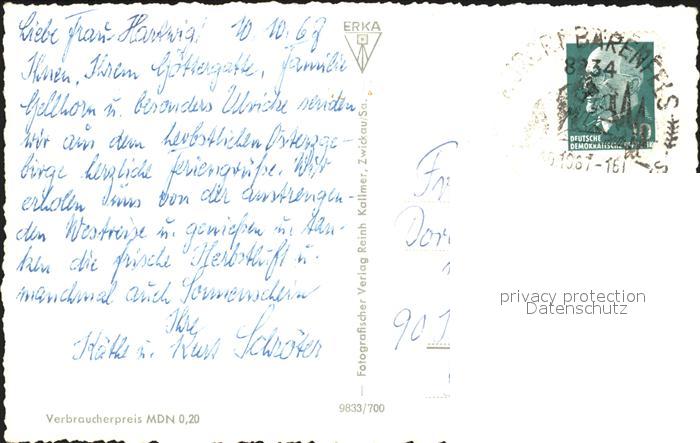 Liebe Frau Hartwig! 10.10.67
Ihnen, Ihrem Göttergatte, Familie
Gellhorn u. besonders Ulrike senden
wir aus dem herbstlichen Osterzge-
birge herzliche Feriengrüße. Wir
erholen uns von der anstrengen-
den Westreise u. genießen u. tan-
ken die frische Herbstluft u.
manchmal auch Sonnenschein
Ihre
Käthe u. Kurt Schröter
Verbraucherpreis MDN 0,20
ERKA
Fotografischer Verlag Reinh Kallmer, Zwickau/Sa.
9833/700
BÄRENFELS
8234
1967-16
DEUTSCHE
DEMOKRATISCHE
Fr
Dor
90
privacy protection
Datenschutz